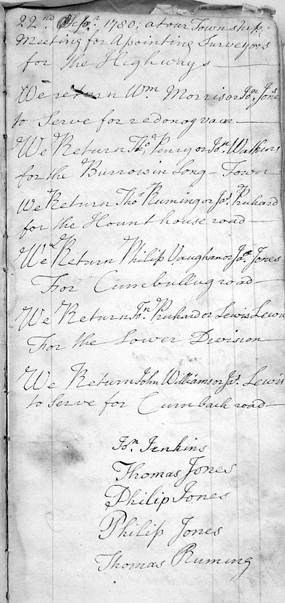 22nd Sepr 1780. at our Town ship
Meeting for Apointing Surveyors
for the Highways
We return Wm Morris or Jon Jones
to Serve for
We Return Thos Penry or Jon Watkins
for the Burrows in Long Town
We Return Thos Ruming or Js Prichard
for the Hount house road
We Return Philip Vaughan or Js Jones
For Cumbullug road
We Return Jn Prichard or Lewis Lewis
For the Lower Division
We Return John Williams or Js Lewis
to Serve for Cumback road
Jon Jenkins
Thomas Jones
Philip Jones
Philip Jones
Thomas Ruming